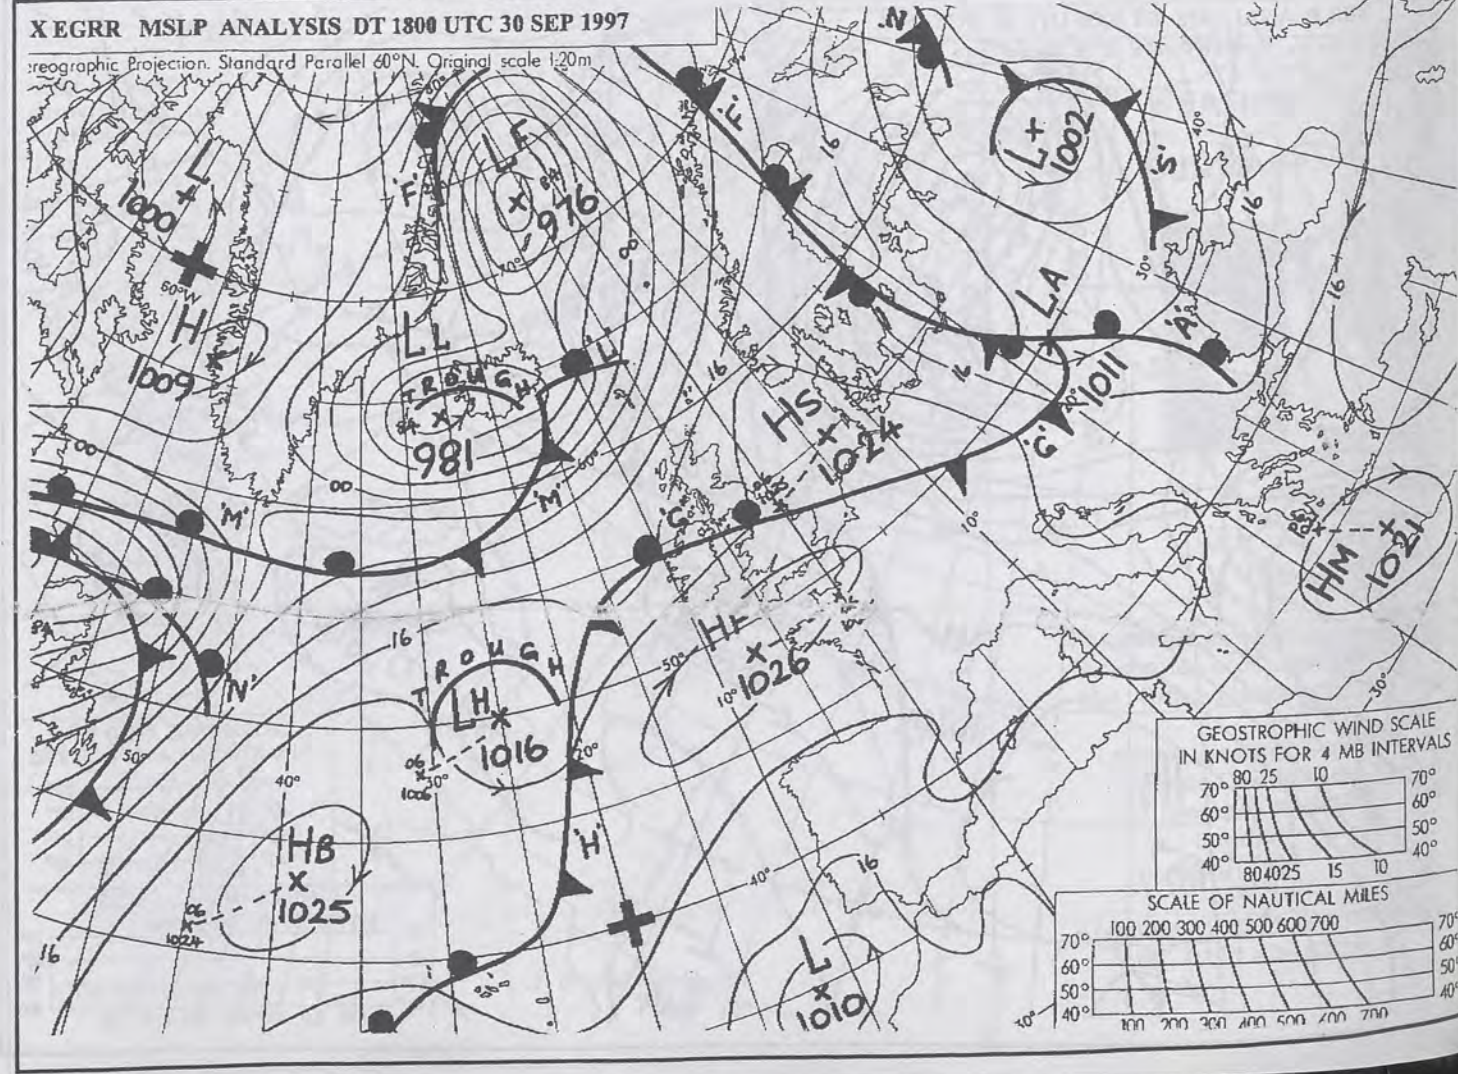 X EGRR MSLP ANALYSIS DT 1800 UTC 30 SEP 1997
reographic Projection. Standard Parallel 60°N. Original scale 1:20m
'N'
L
1002
'S'
40°
30°
16
16
16
'F'
'F'
LF
976
70°
L
1000
60°W
H
1009
LL
TROUGH
981
'L'
00
00
00
'M'
'M'
60°
LA
1011
'A'
20°
'G'
16
16
HS
1024
'G'
10°
HM
1021
HF
1026
10°
50°
30°
16
TROUGH
LH
1016
06
1006
30°
20°
'N'
50°
40°
HB
1025
06
1024
16
'H'
40°
16
L
1010
10°
GEOSTROPHIC WIND SCALE
IN KNOTS FOR 4 MB INTERVALS
80 25 10
70° 70°
60° 60°
50° 50°
40° 40°
80 40 25 15 10
SCALE OF NAUTICAL MILES
100 200 300 400 500 600 700
70° 70°
60° 60°
50° 50°
40° 40°
100 200 300 400 500 600 700